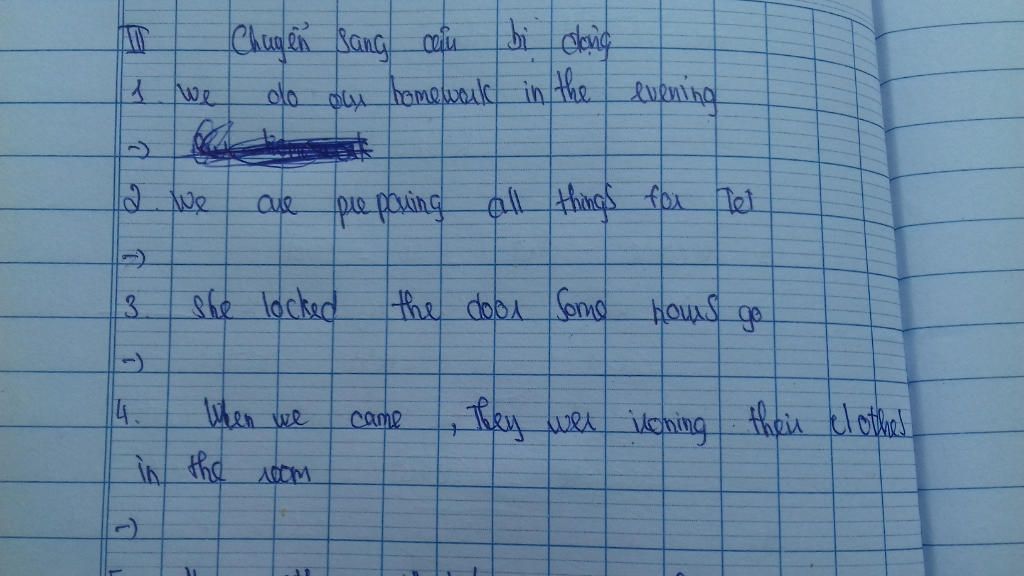 III Chuyển sang câu bị động
1. We do our homework in the evening
=)
2. We are preparing all things for Tet
=)
3. She locked the door some hours go
=)
4. When we came , they wer ironing their clothes
in the room
=)